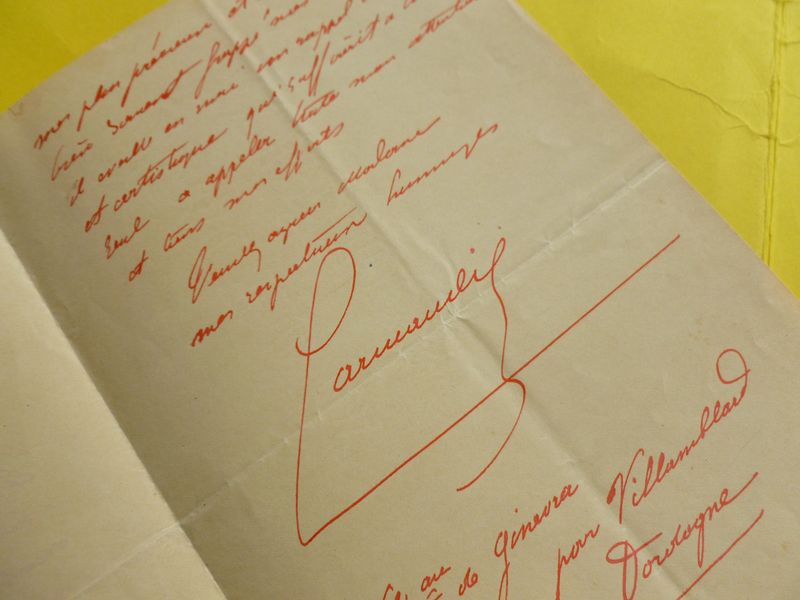 mes plus précieux et
bien souvent frappé mes
il éveille en moi un rappel
et artistique qui suffirait à
seul a appeler toute mon attention
et tous mes efforts
Veuillez agréer Madame
mes respectueux hommages
Larmandie
au
de Ginevra
pour Villamblard
Dordogne